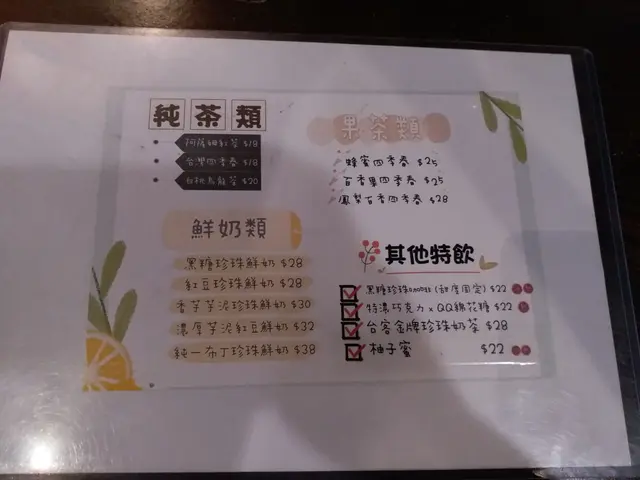 純茶類
阿薩姆紅茶 $18
台灣四季春 $18
白桃烏龍茶 $20
果茶類
蜂蜜四季春 $25
百香果四季春 $25
鳳梨百香四季春 $28
鮮奶類
黑糖珍珠鮮奶 $28
紅豆珍珠鮮奶 $28
香芋芋泥珍珠鮮奶 $30
濃厚芋泥紅豆鮮奶 $32
純一布丁珍珠鮮奶 $38
其他特飲
黑糖珍珠 (甜度固定) $22
特濃巧克力 x QQ綿花糖 $22
台客金牌珍珠奶茶 $28
柚子蜜 $22